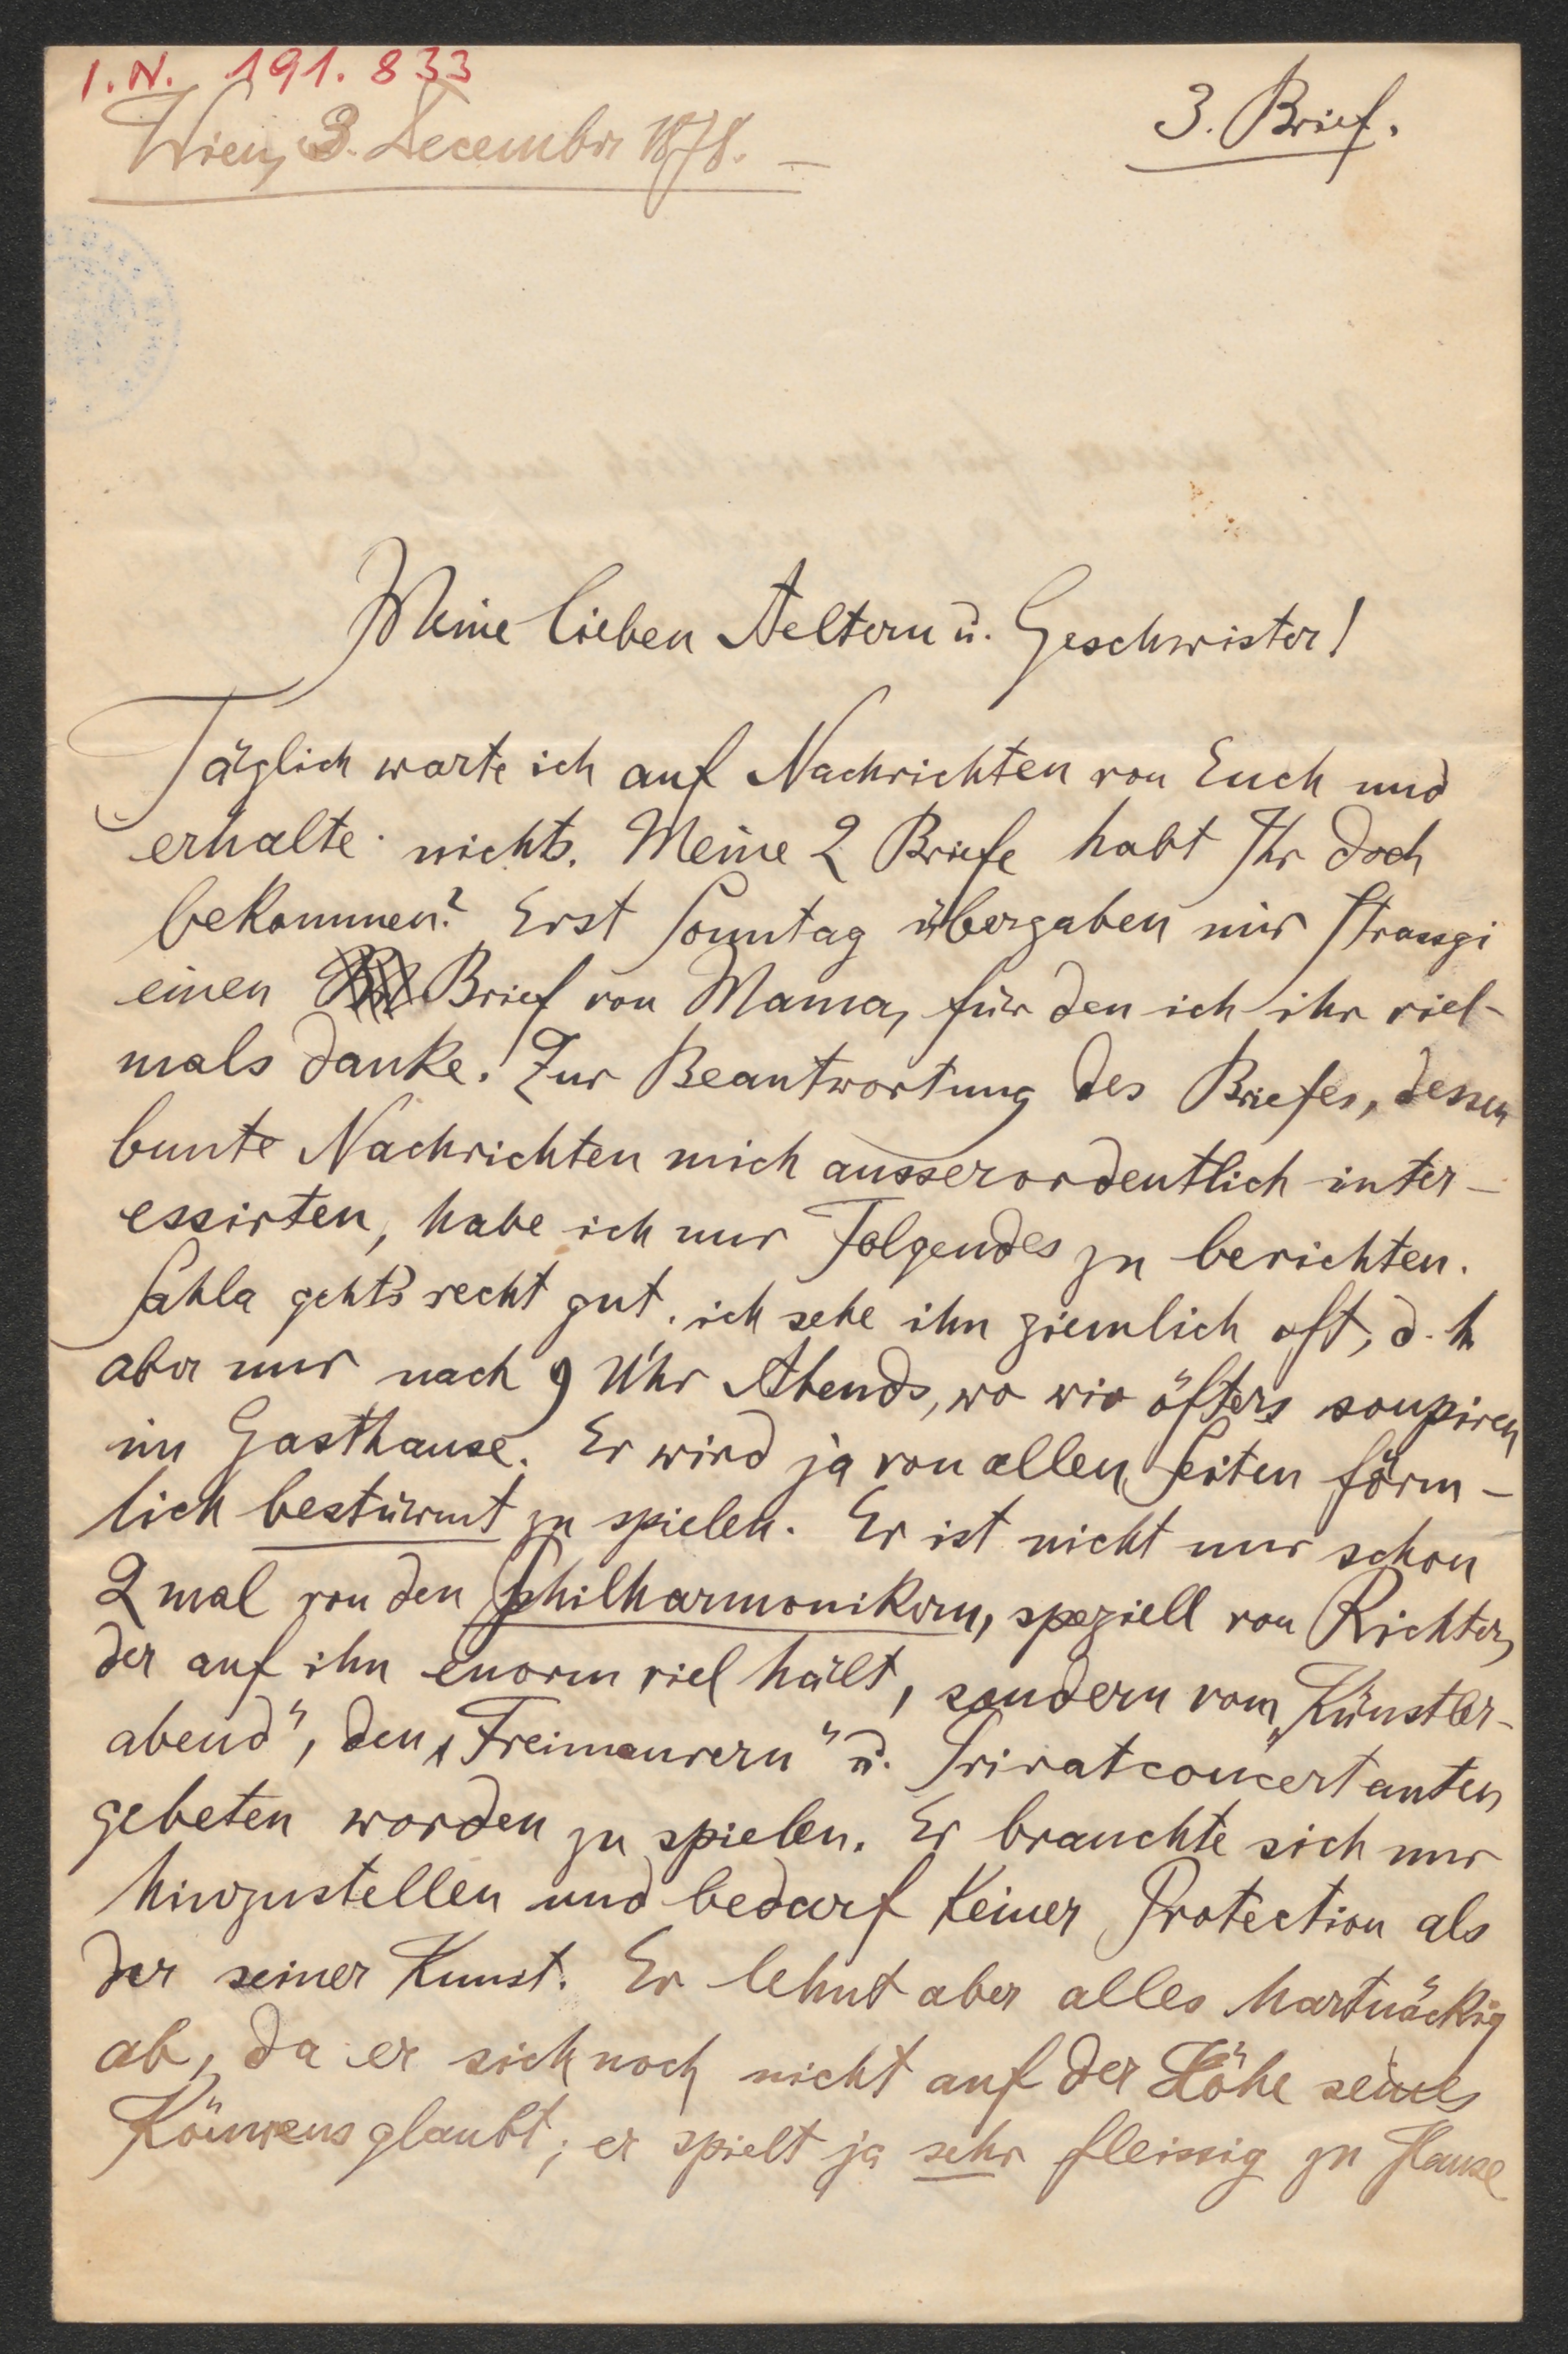 I.N. 191.833
Wien, 3. December 1878. –
3. Brief.
Meine lieben Aeltern u. Geschwister!
Täglich warte ich auf Nachrichten von Euch und
erhalte nichts. Meine 2 Briefe habt Ihr doch
bekommen? Erst Sonntag übergaben mir Strassgi
einen Brief von Mama, für den ich ihr viel-
mals danke! Zur Beantwortung des Briefes, dessen
bunte Nachrichten mich ausserordentlich inter-
essirten, habe ich nur Folgendes zu berichten.
Sahla gehts recht gut, ich sehe ihn ziemlich oft, d. h
aber nur nach 9 Uhr Abends, wo wir öfters soupiren
im Gasthause. Er wird ja von allen Seiten förm-
lich bestürmt zu spielen. Er ist nicht nur schon
2 mal von den Philharmonikern, speziell von Richter,
der auf ihn enorm viel hält, sondern vom „Künstler-
abend", den „Freimaurern" u. Privatconcertanten
gebeten worden zu spielen. Er brauchte sich nur
hinzustellen und bedarf keiner Protection als
der seiner Kunst. Er lehnt aber alles hartnäckig
ab, da er sich noch nicht auf der Höhe seines
Könnens glaubt; er spielt ja sehr fleissig zu Hause